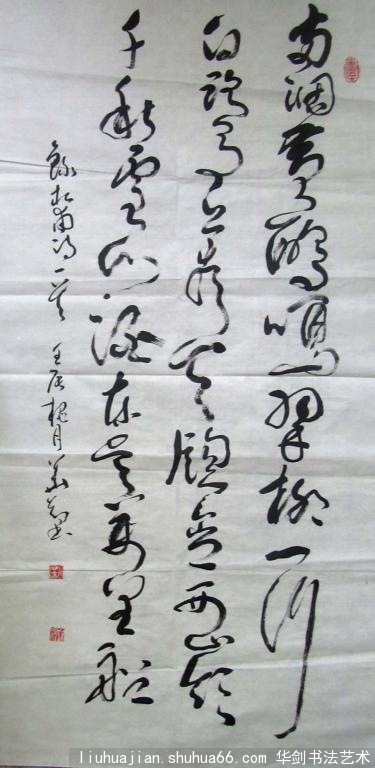 两個黄鸝鳴翠柳一行
白鷺上青天窗含西嶺
千秋雪门泊东吴万里船
錄杜甫诗一首 壬辰 月
liuhuajian.shuhua66.com 华剑书法艺术